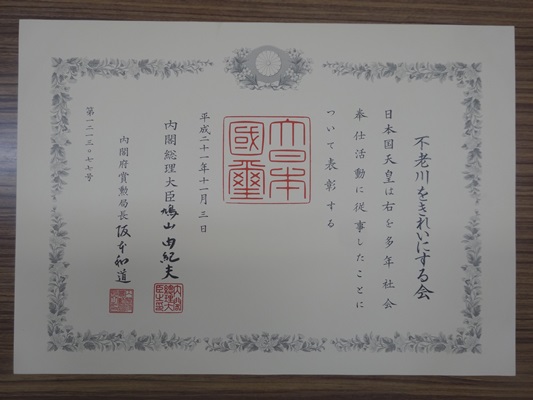 不老川をきれいにする会
日本国天皇は右を多年社会
奉仕活動に従事したことに
ついて表彰する
大日本
國璽
平成二十一年十一月三日
内閣総理大臣鳩山由紀夫
内閣総理大臣之印
内閣府賞勲局長阪本和道
第一二一三〇七七号